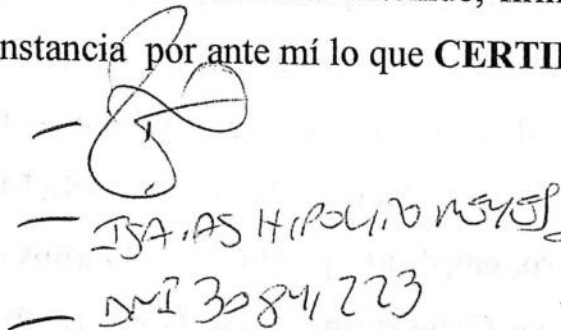 nstancia por ante mí lo que CERTI
— ISAIAS HIPOLITO REYES
— DNI 30841223